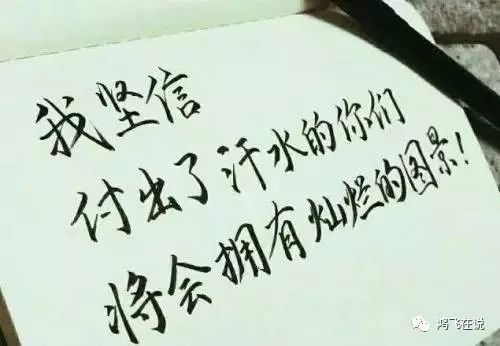 我坚信
付出了汗水的你们
将会拥有灿烂的图景！
鸿飞在说